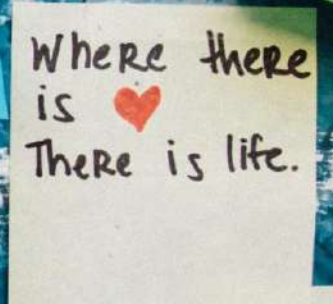 Where there
is ❤
There is life.